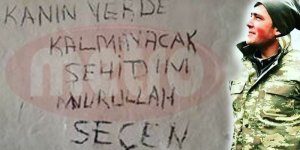 KANIN YERDE
KALMAYACAK
ŞEHİDİM
NURULLAH
SEÇEN